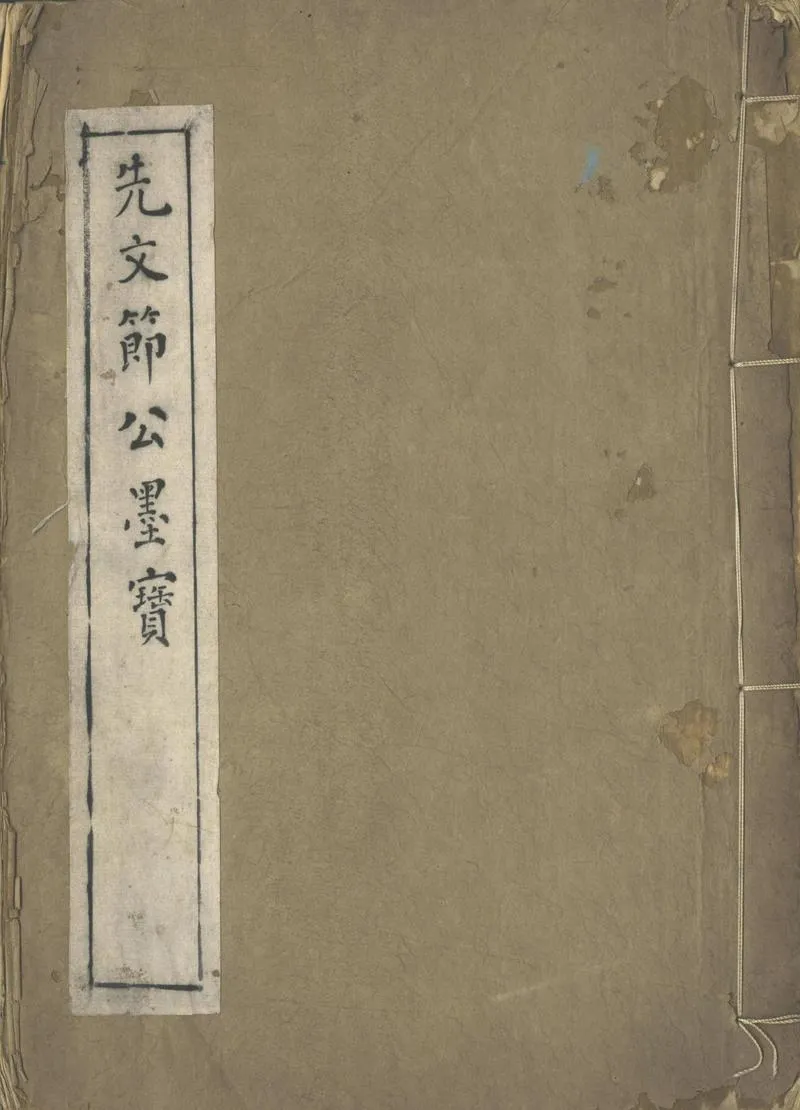 先文節公墨寶